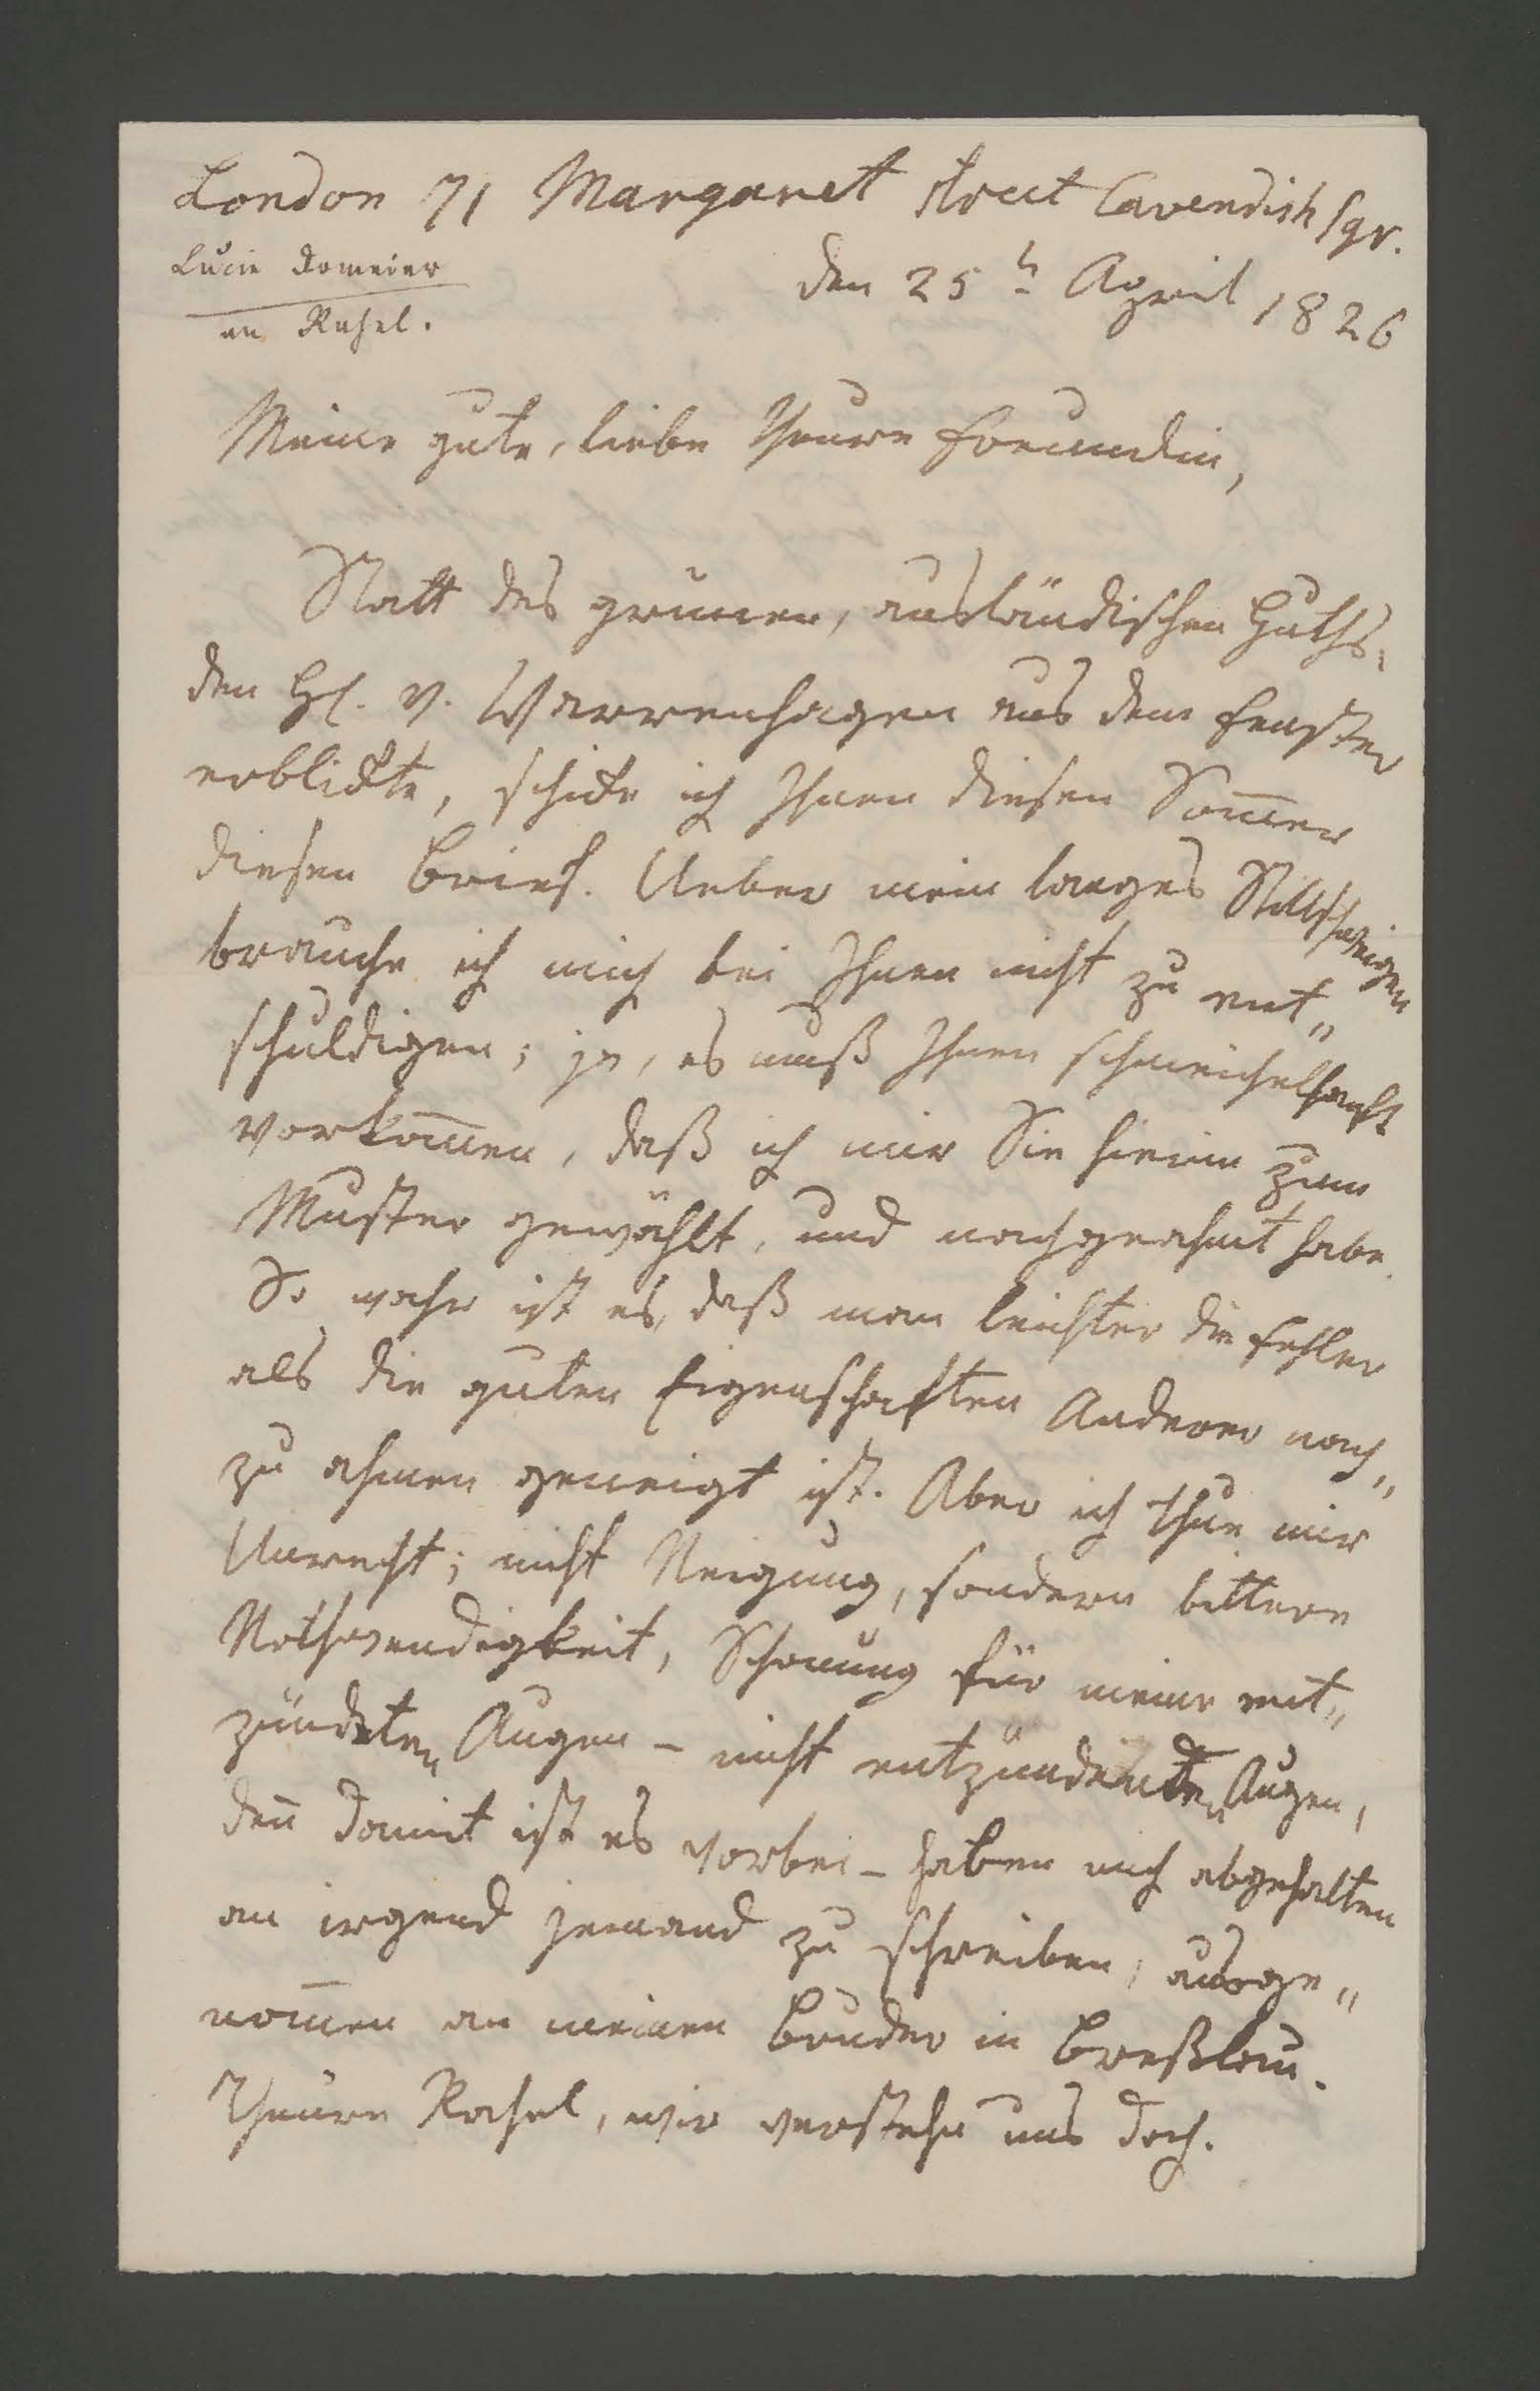 London 71 Margaret street Cavendish sqr.
Lucie Domeier
an Rahel.
den 25t April 1826
Meine gute, liebe Theure Freundin,
Statt des grünen, ausländischen Huths,
den H. v. Warrenhagen aus dem Fenster
erblickte, schicke ich Ihnen diesen Som̄er
diesen Brief. Ueber mein langes Stillschweigen
brauche ich mich bei Ihnen nicht zu ent„
schuldigen; ja, es muß Ihnen schmeichelhaft
vorkom̄en, daß ich mir Sie hierin zum
Muster gewählt, und nachgeahmt habe.
So wahr ist es, daß man leichter die Fehler
als die guten Eigenschaften Anderer nach„
zu ahmen geneigt ist. Aber ich thue mir
Unrecht; nicht Neigung, sondern bittere
Nothwendigkeit, Schonung für meine ent„
zündeten Augen – nicht entzündende Augen,
den̄ damit ist es vorbei – haben mich abgehalten
an irgend jemand zu schreiben, ausge„
nom̄en an meinen Bruder in Breßlau.
Theure Rahel, wir verstehn uns doch.